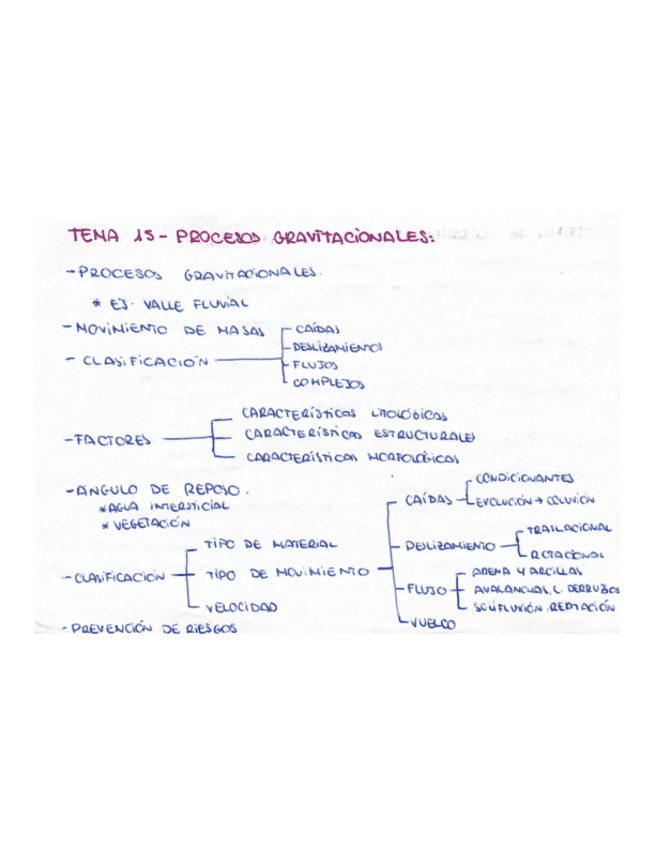 TEMA 15 - PROCESOS GRAVITACIONALES:
- PROCESOS GRAVITACIONALES.
* EJ. VALLE FLUVIAL
- MOVIMIENTO DE MASAS
- CLASIFICACIÓN
CAÍDAS
DESLIZAMIENTOS
FLUJOS
COMPLEJOS
- FACTORES
CARACTERÍSTICAS LITOLÓGICAS
CARACTERÍSTICAS ESTRUCTURALES
CARACTERÍSTICAS MORFOLÓGICAS
- ÁNGULO DE REPOSO.
* AGUA INTERSTICIAL
* VEGETACIÓN
- CLASIFICACIÓN
TIPO DE MATERIAL
TIPO DE MOVIMIENTO
VELOCIDAD
CAÍDAS
CONDICIONANTES
EVOLUCIÓN → COLUVIÓN
DESLIZAMIENTO
TRASLACIONAL
ROTACIONAL
FLUJO
ARENA Y ARCILLAS
AVALANCHAS, C. DERRUBIOS
SOLIFLUXIÓN. REPTACIÓN
VUELCO
- PREVENCIÓN DE RIESGOS